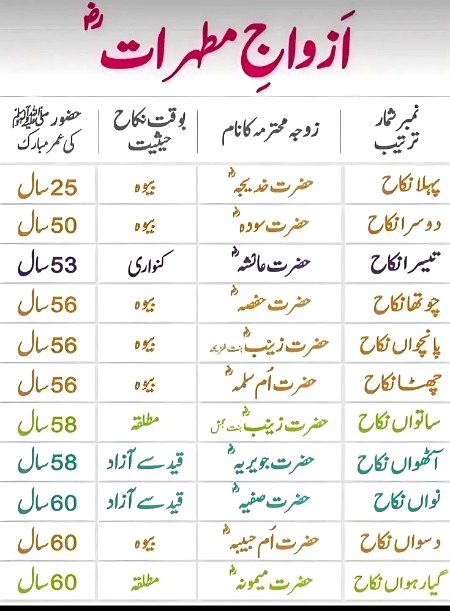 اَزواجِ مطہرات رضؓ
نمبر شمار ترتیب | زوجہ محترمہ کا نام | بوقت نکاح حیثیت | حضور ﷺ کی عمر مبارک
پہلا نکاح | حضرت خدیجہؓ | بیوہ | 25 سال
دوسرا نکاح | حضرت سودہؓ | بیوہ | 50 سال
تیسرا نکاح | حضرت عائشہؓ | کنواری | 53 سال
چوتھا نکاح | حضرت حفصہؓ | بیوہ | 56 سال
پانچواں نکاح | حضرت زینبؓ بنت خزیمہ | بیوہ | 56 سال
چھٹا نکاح | حضرت اُم سلمہؓ | بیوہ | 56 سال
ساتواں نکاح | حضرت زینبؓ بنت جحش | مطلقہ | 58 سال
آٹھواں نکاح | حضرت جویریہؓ | قید سے آزاد | 58 سال
نواں نکاح | حضرت صفیہؓ | قید سے آزاد | 60 سال
دسواں نکاح | حضرت اُم حبیبہؓ | بیوہ | 60 سال
گیارہواں نکاح | حضرت میمونہؓ | مطلقہ | 60 سال